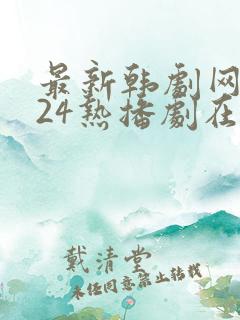 最新韩劇网
24热播劇在
戴清堂
未经同意禁止转载